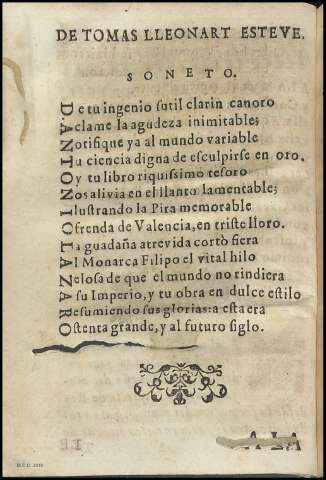 DE TOMAS LLEONART ESTEVE.
SONETO.
De tu ingenio sutil clarin canoro
Aclame la agudeza inimitable;
Notifique ya al mundo variable
Tu ciencia digna de esculpirse en oro.
Oy tu libro riquissimo tesoro
Nos alivia en el llanto lamentable;
Ilustrando la Pira memorable
Ofrenda de Valencia, en triste lloro.
La guadaña atrevida cortò fiera
Al Monarca Filipo el vital hilo
Zelosa de que el mundo no rindiera
A su Imperio, y tu obra en dulce estilo
Resumiendo sus glorias: a esta era
Ostenta grande, y al futuro siglo.
ALA